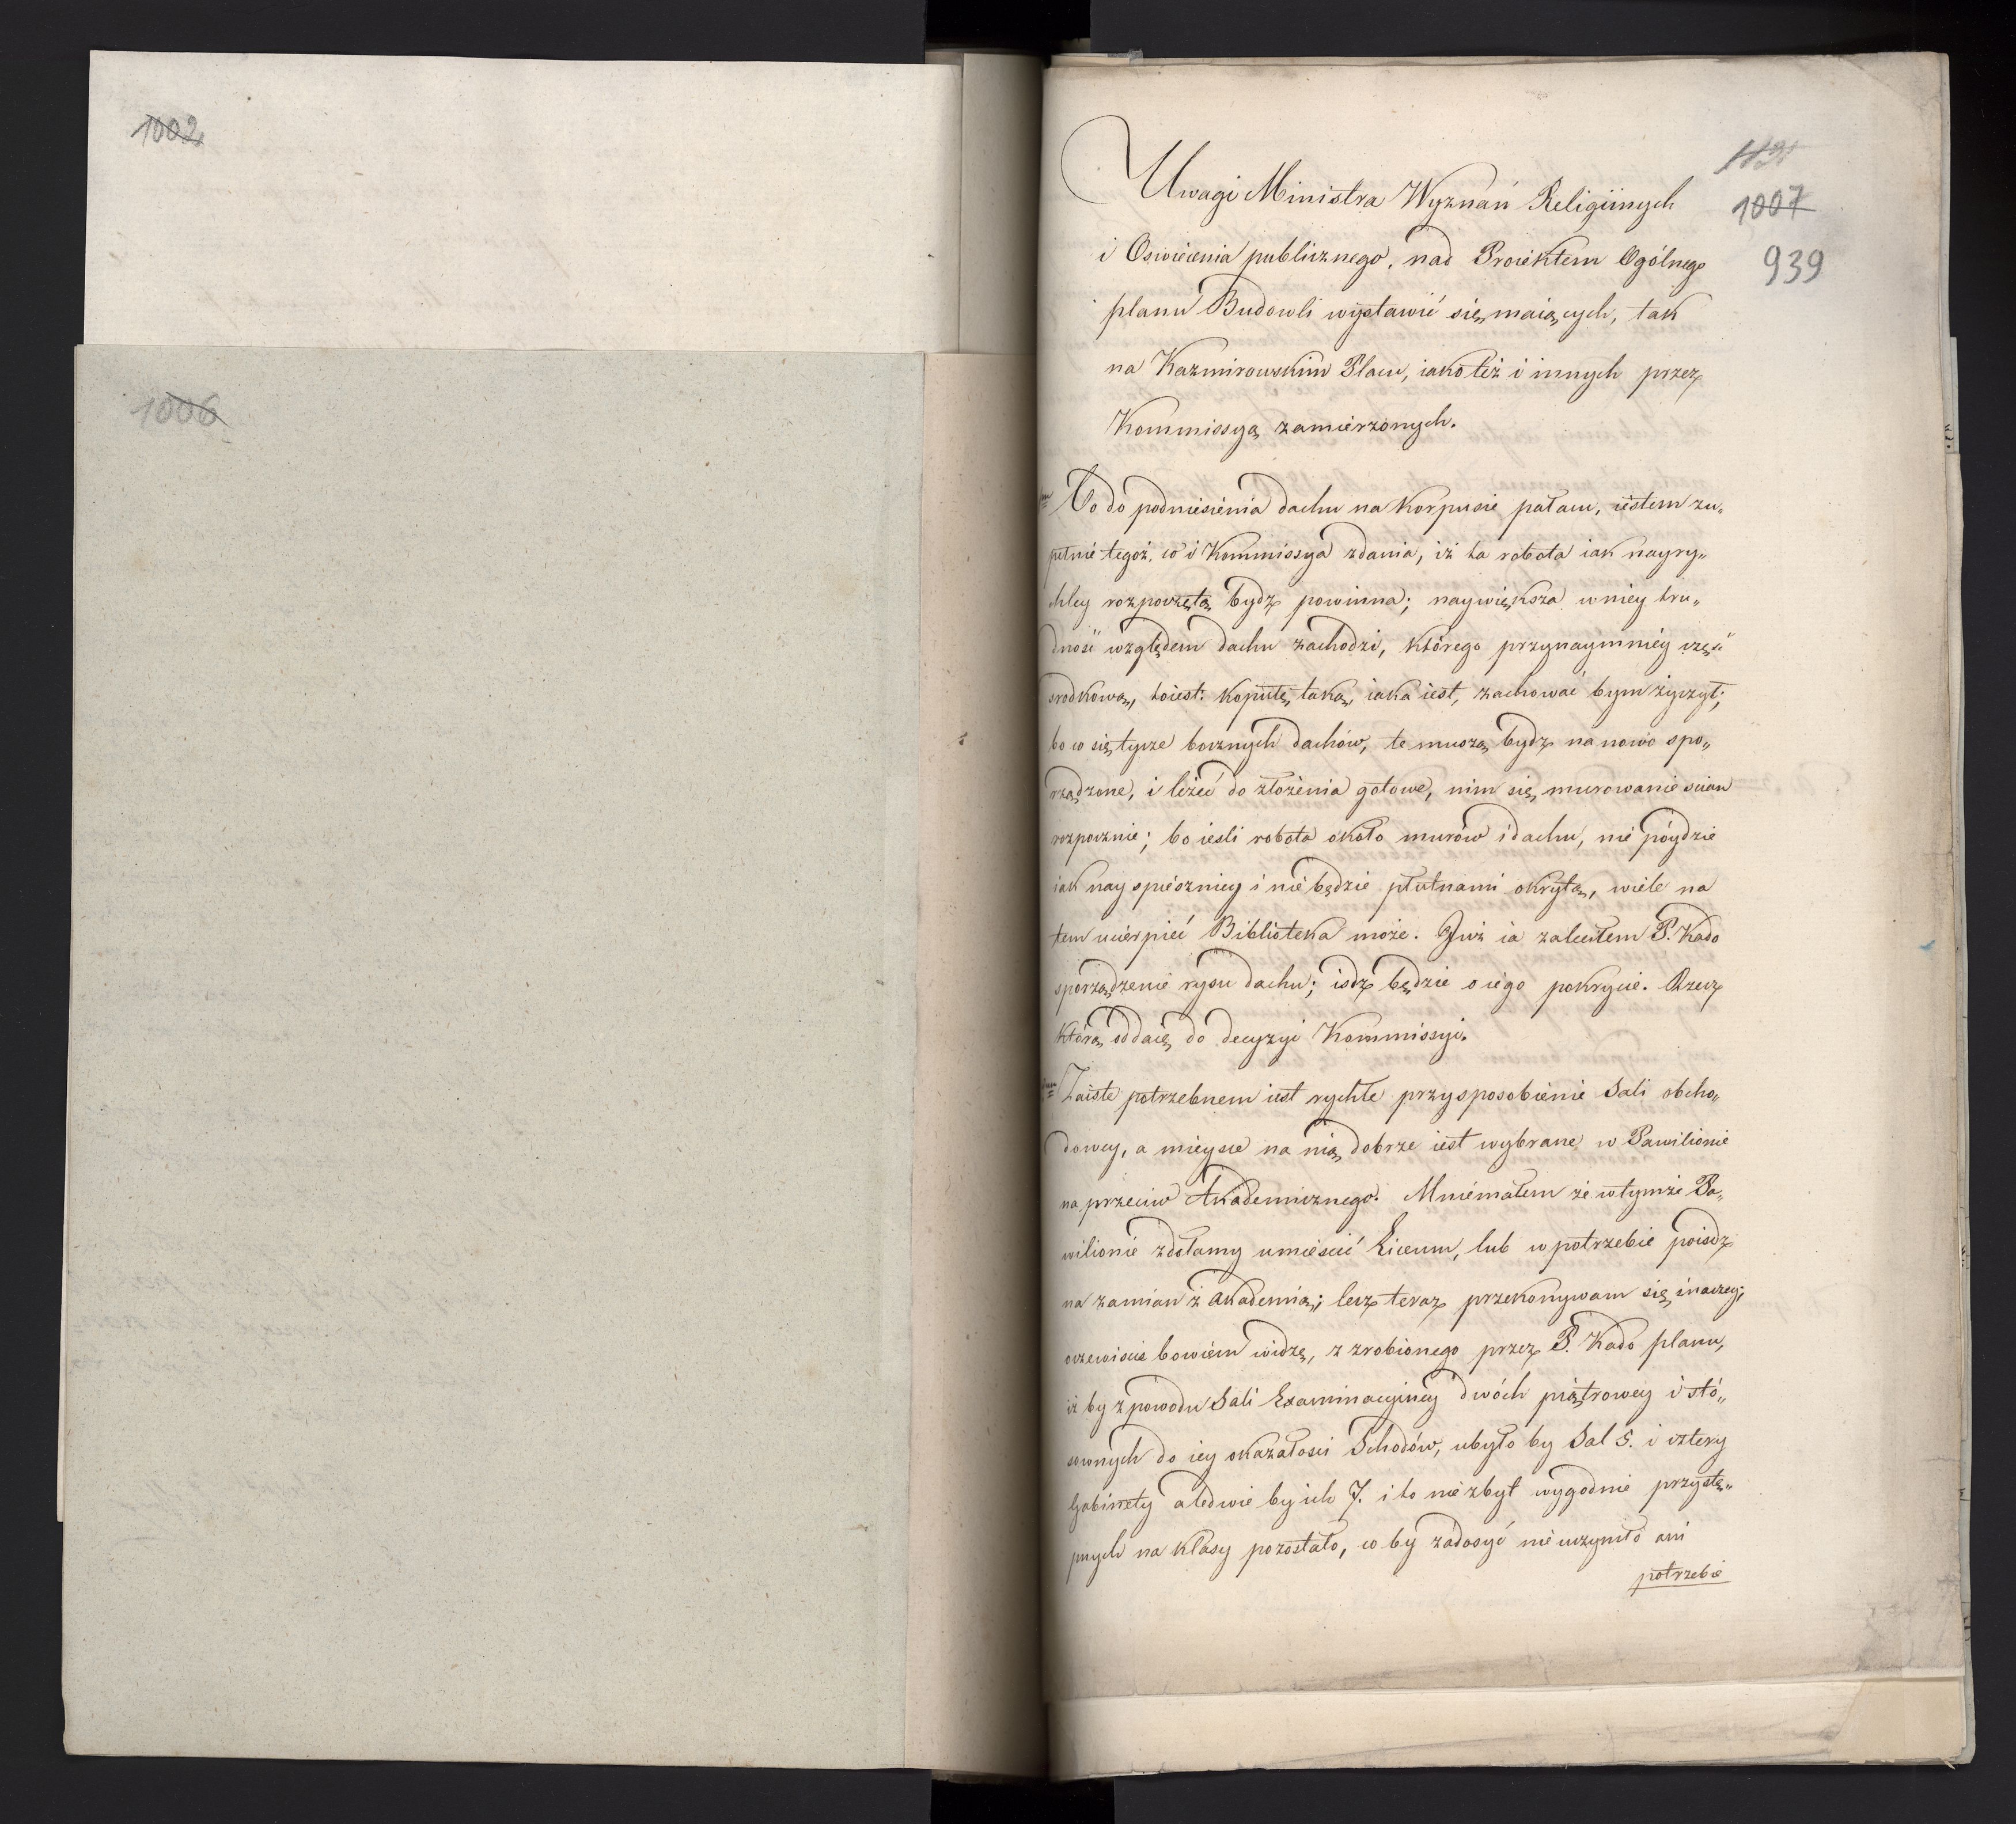 1002
1006
1007
939
Uwagi Ministra Wyznań Religiinych
i Oswiecenia publicznego, nad Proiektem Ogólnego
planu Budowli wystawić się maiących, tak
na Kazmirowskim Placu, iako też i innych przez
Kommissyą zamierzonych.
Co do podniesienia dachu na Korpusie pałacu, iestem zu„
pełnie tegoż, co i Kommissya zdania, iż ta robota iak nayry„
chley rozpoczętą bydz powinna; naywiększa w niey tru„
dność względem dachu zachodzi, którego przynaymniéy część
srodkową, toiest: kopułę, taką, iaka iest, zachować bym życzył;
bo co się tycze bocznych dachów, te muszą bydz na nowo spo„
rządzone, i leżeć do złożenia gotowe, nim się murowanie scian
rozpocznie; bo iesli robota około murów i dachu, nie póydzie
iak nayspieszniey i nie będzie płutnami okrytą, wiele na
tem ucierpieć Biblioteka może. Już ia zaleciłem P. Kado
sporządzenie rysu dachu; isdz będzie o iego pokrycie. Rzecz
którą oddaię do decyzyi Kommissyi.
Zaiste potrzebnem iest rychłe przysposobienie Sali obcho„
dowey, a mieysce na nią dobrze iest wybrane w Pawilionie
na przeciw Akademicznego. Mniémałem że w tymże Pa„
wilionie zdołamy umieścić Liceum, lub w potrzebie poisdz
na zamian z Akademią; lecz teraz przekonywam się inaczey;
oczewiscie bowiem widzę, z zrobionego przez P. Kado planu,
iż by z powodu Sali Examinacyiney dwóch piątrowey i stó„
sownych do iey okazałosci Schodów, ubyło by Sal 5. i cztery
Gabinety a ledwie by ich 7. i to nie zbyt wygodnie przystę„
pnych na klasy pozostało, co by zadosyć nie uczyniło ani
potrzebie